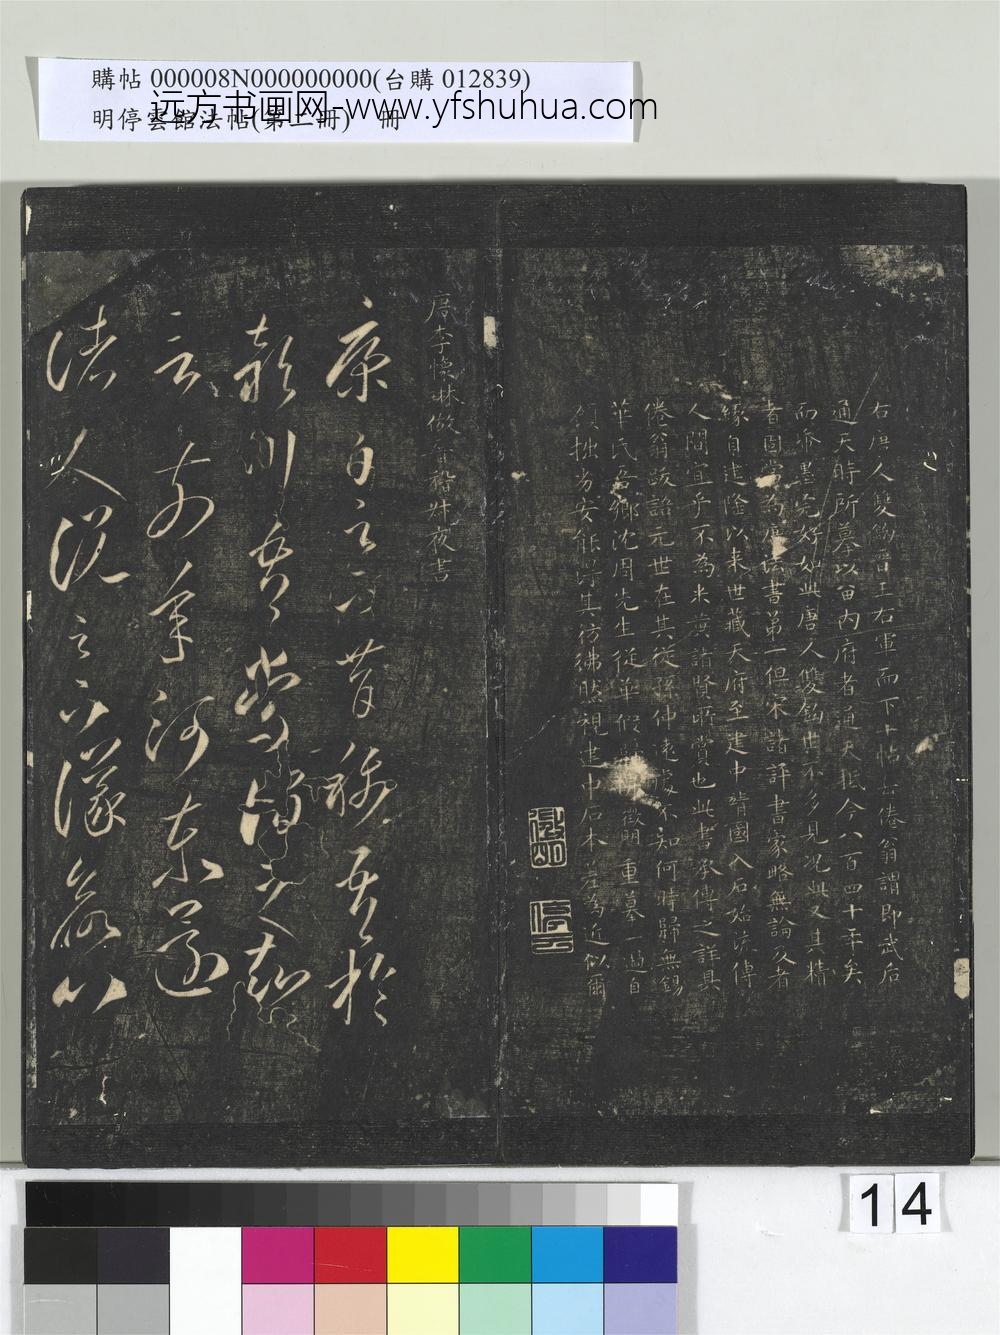 購帖 000008N000000000(台購 012839)
明停雲館法帖(第二冊) 冊
远方书画网-www.yfshuhua.com
右唐人雙鉤晉王右軍而下十帖岳倦翁謂即武后
通天時所摹以留內府者通天抵今八百四十年矣
而紙墨完好如此唐人雙鉤世不多見況此又其精
者固當為唐法書第一但宋諸詳書家略無論及者
緣自建隆以來世藏天府至建中靖國入石始流傳
人間宜乎不為米黃諸賢所賞也此書承傳之詳具
倦翁跋語元世在其從孫仲遠處不知何時歸無錫
華氏吾鄉沈周先生從華假歸徵明重摹一過自
顧拙劣安能得其彷彿然視建中石本差為近似爾
徵明
停雲
唐李懷琳倣嵇康絕交書
康白足下昔稱吾於
潁川吾嘗謂之知
言 前年河東還
諸人說足下議欲以
14